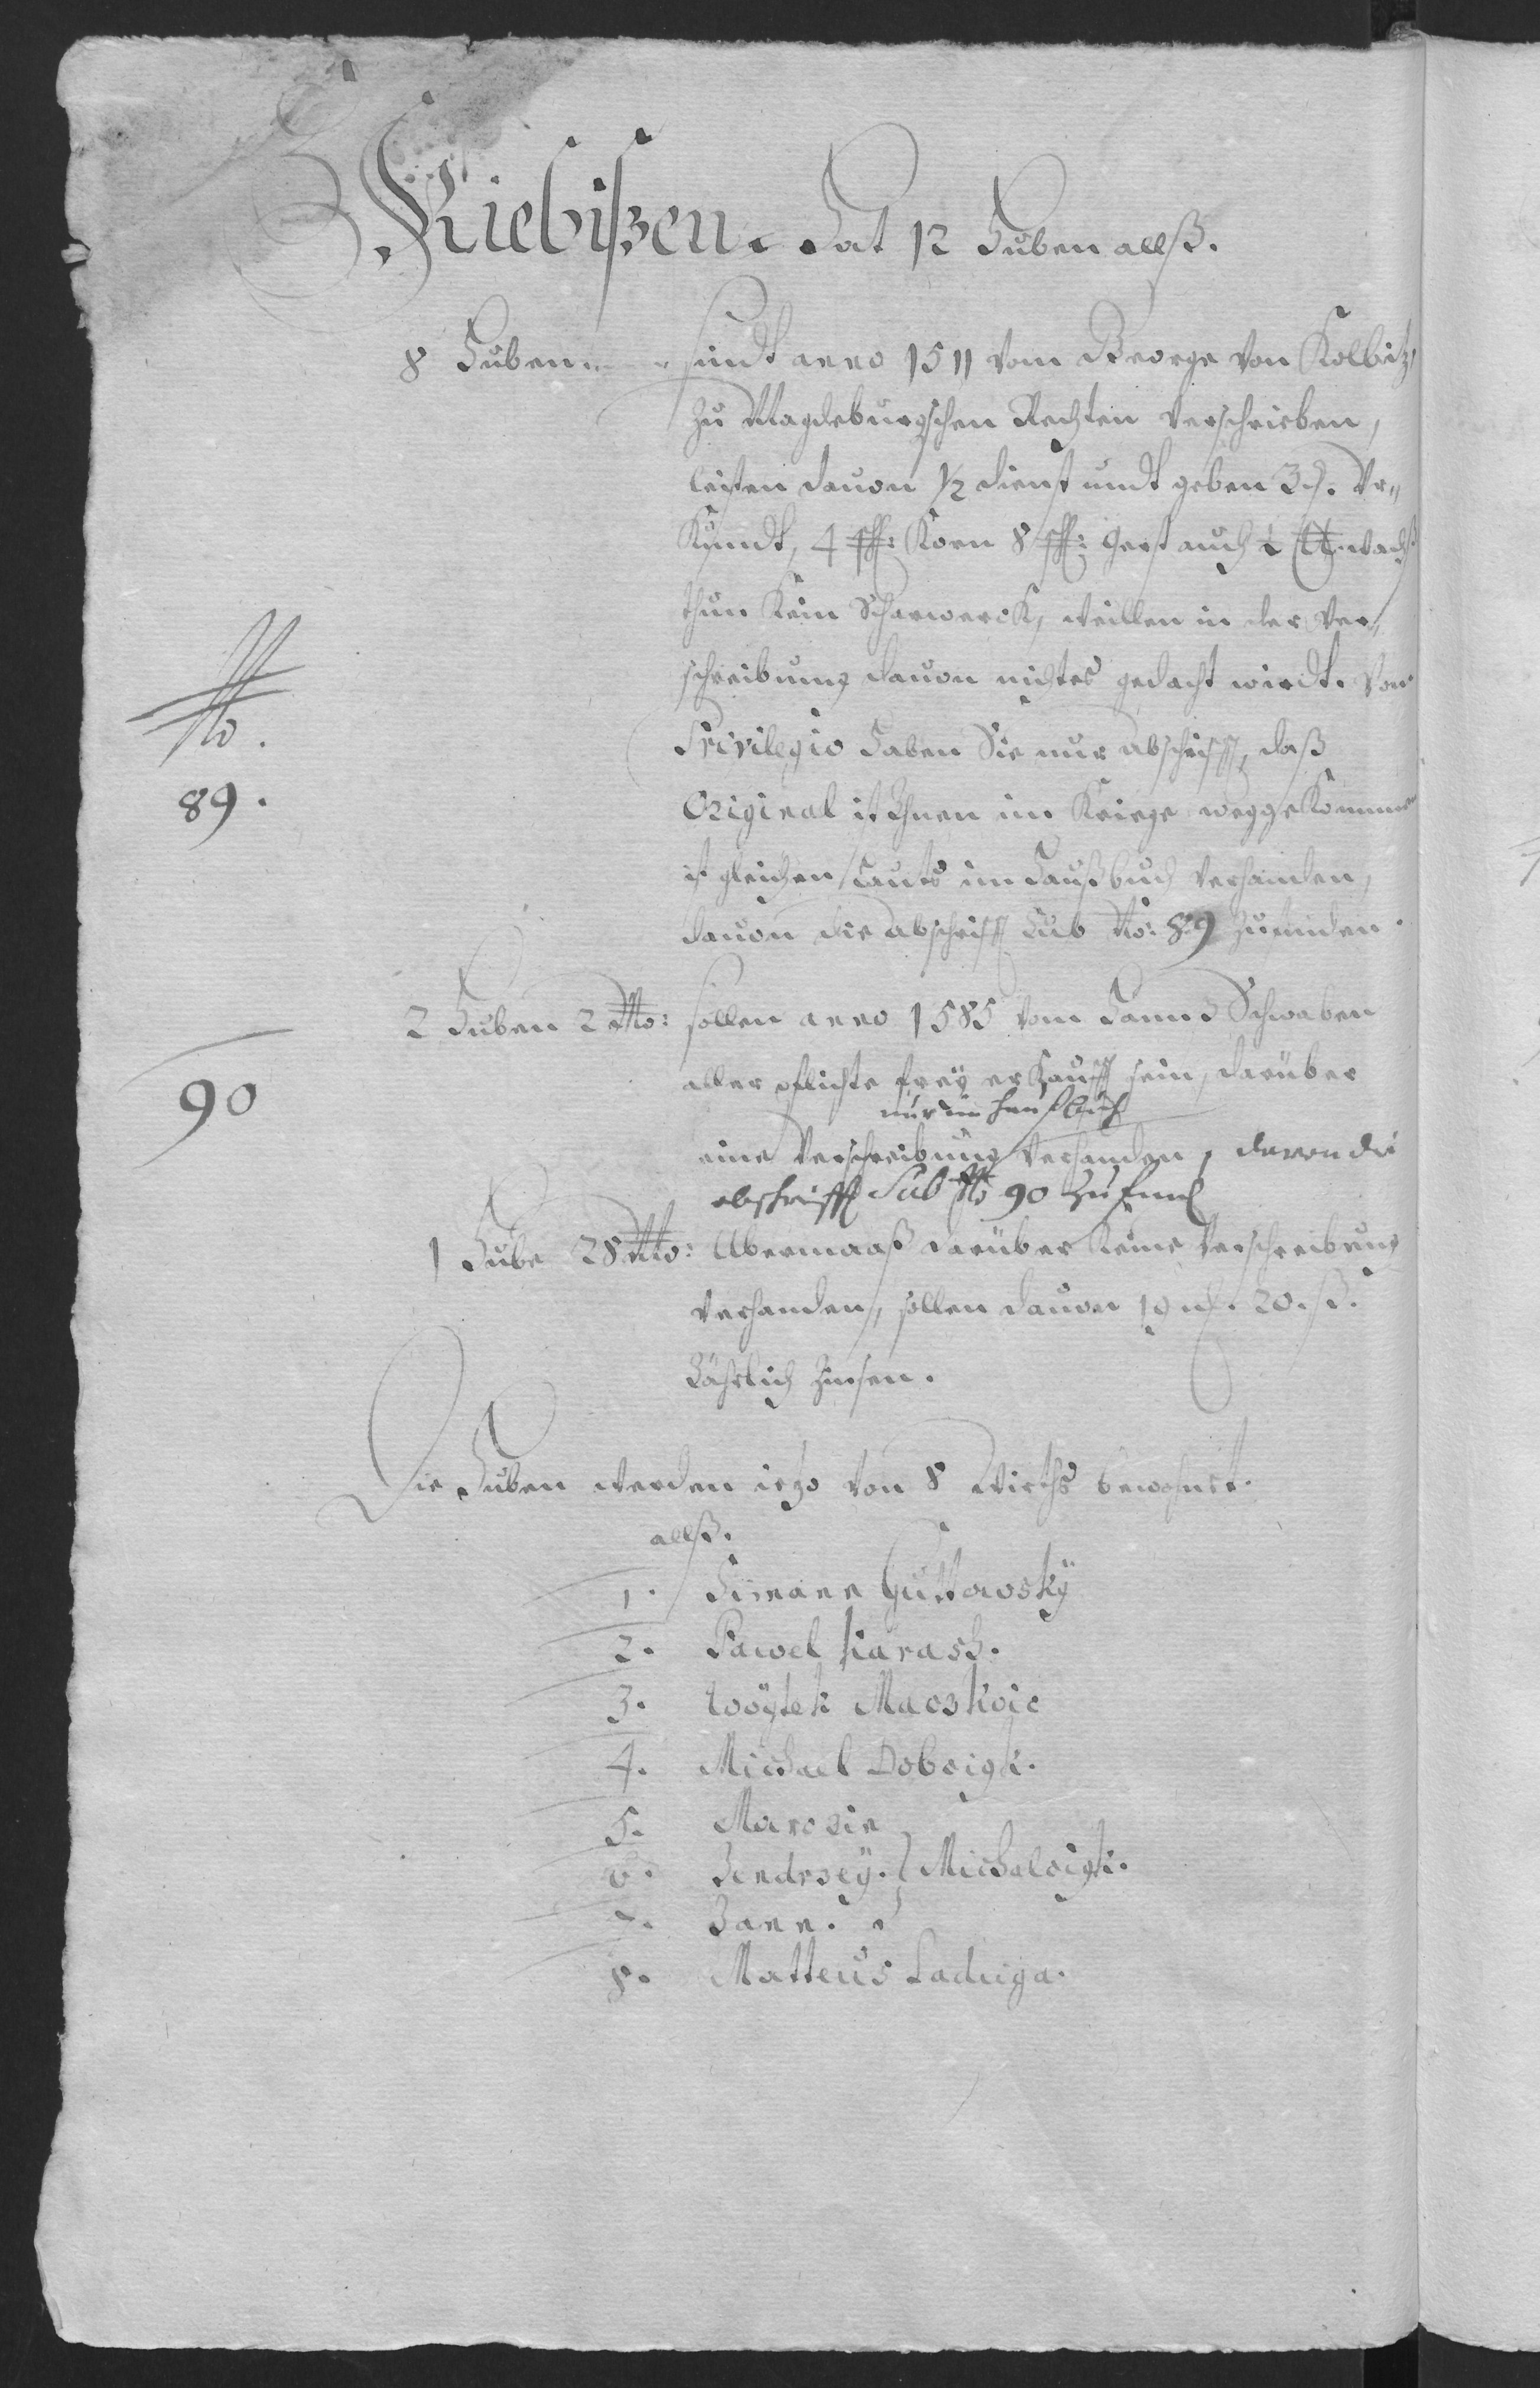 Kiebißen. Hat 12 Huben allß.
8 Huben sindt anno 1511 vom George von Kolbitz,
zu Magdeburgschen Rechten verschrieben,
leisten dauon 1/2 dienst undt geben 3 Vr„
Kundt, 4 sch: Korn 8 sch: Gerst auch 1 wachß
thun Kein Scharwerck, weillen in der Ver„
schreibung dauon nichtes gedacht wirdt. Von
Privilegio haben Sie nur abschrifft, daß
No.
89.
Original ist Ihnen im Kriege weggekommen
ist gleichen Lauts im Haußbuch verhanden,
dauon die abschrifft Sub No: 89 zufinden.
2 Huben 2 Mo: sollen anno 1585 vom Hannß Schwaben
90
aller pflichte freÿ erkaufft sein, darüber
nur im haußbuch
eine Verschreibung verhanden, davon die
abschrifft Sub No 90 zu find
1 Hube 28 Mo: Übermaaß darüber Keine Verschreibung
verhanden, sollen dauon 19 20. ß.
Jährlich Zinsen.
Die Huben werden ietzo von 8 Wirths bewohnt.
allß.
1. Simann Guttowskÿ
2. Pawel Karasch.
3. Woÿtek Maczkoic
4. Michael Dobcigk.
5. Marczin
6. Jendrzeÿ. } Michalcigk.
7. Jann.
8. Matteus Laduga.